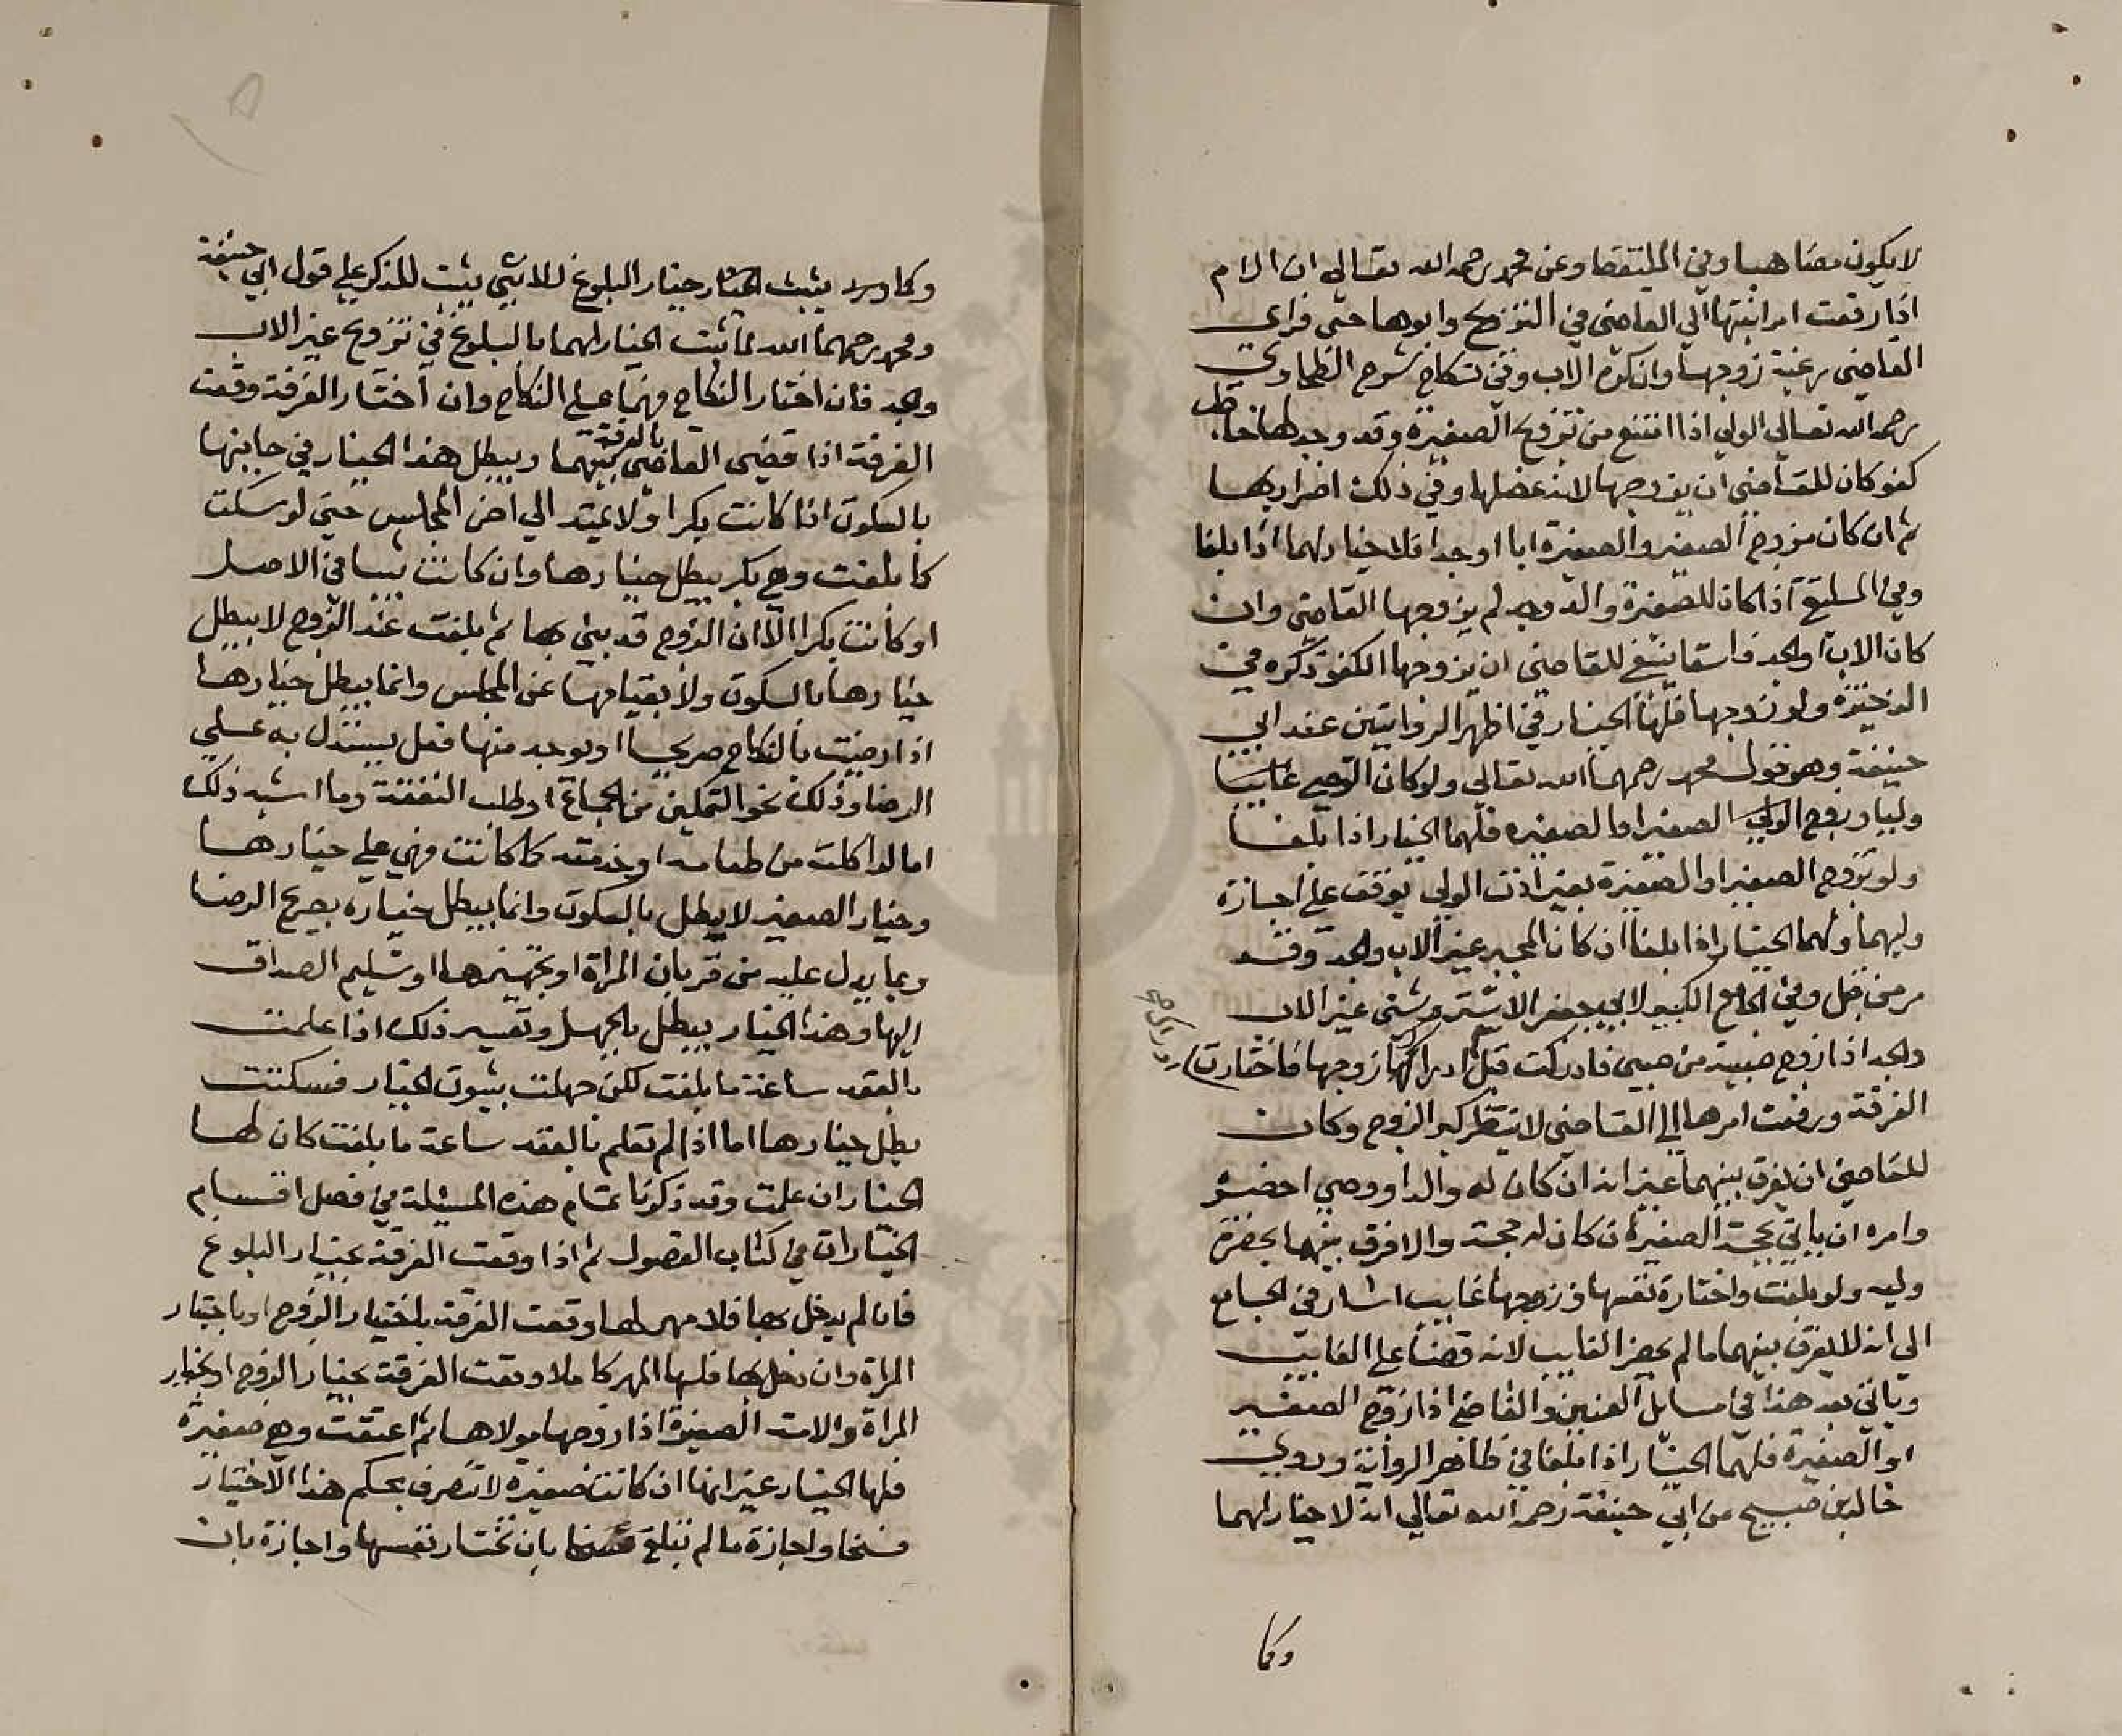 لا يكون مضاهيا وفي الملتقط وعن محمد رحمه الله تعالى ان الام
اذا رفعت امر ابنتها الي القاضي في التزويج وابوها حتى فراي
القاضي رغبة زوجها وان كره الاب وفي نكاح شرح الطحاوي
رحمه الله تعالي الولي اذا امتنع من تزويج الصغيرة وقد وجد لها خاطب
كفو كان للقاضي ان يزوجها لانه عضلها وفي ذلك اضرار بها
ثم ان كان مزوج الصغير والصغيرة ابا او جدا فلا خيار لهما اذا بلغا
وفي اذا كان للصغيرة والد وجد لم يزوجها القاضي وان
كان الاب او الجد فاسقا ينبغي للقاضي ان يزوجها الكفو ذكره في
الذخيرة ولو زوجها فلها الخيار في اظهر الروايتين عند ابي
حنيفة وهو قول محمد رحمهما الله تعالى ولو كان الوصي غايبا
الولي الصغير او الصغيره فلهما الخيار اذا بلغا
ولو تزوج الصغير او الصغيرة بغير اذن الولي توقف على اجازة
وليهما ولهما الخيار اذا بلغا ان كان المجيز غير الاب والجد وقد
مر من قبل وفي الجامع الكبير لابي جعفر غير الاب
والجد اذا زوج صبية من صبي فادركت قبل ادراك زوجها فاختارت
الفرقة ورفعت امرها الي القاضي لا ينتظر كبر الزوج وكان
للقاضي ان يفرق بينهما غير انه ان كان له والد او وصي احضره
وامره ان ياتي بحجة الصغير ان كان له حجة والا فرق بينهما بحضرة
وليه ولو بلغت واختارة نفسها وزوجها غايب اشار في الجامع
الي انه لا يفرق بينهما ما لم يحضر الغايب لانه قضا على الغايب
وياتي بعد هذا في مسايل العنين والقاضي اذا زوج الصغير
او الصغيرة فلهما الخيار اذا بلغا في ظاهر الرواية وروي
خالد بن صبيح عن ابي حنيفة رحمه الله تعالي انه لا خيار لهما
وكما
وكما يثبت خيار البلوغ للانثي يثبت للذكر علي قول ابي حنيفة
ومحمد رحمهما الله ثبت الخيار لهما بالبلوغ في تزويج غير الاب
والجد فان اختار النكاح فهما علي النكاح وان اختار الفرقة وقعت
الفرقة اذا قضي القاضي بالفرقة بينهما ويبطل هذا الخيار في جانبها
بالسكوت اذا كانت بكرا ولا يمتد الي اخر المجلس حتى لو سكت
كما بلغت وهي بكر يبطل خيارها وان كانت ثيبا في الاصل
او كانت بكرا الا ان الزوج قد بني بها ثم بلغت عند الزوج لا يبطل
خيارها بالسكوت ولا بقيامها عن المجلس وانما يبطل خيارها
اذا رضيت بالنكاح صريحا او يوجد منها فعل يستدل به علي
الرضا وذلك نحو التمكين من الجماع او طلب النفقة وما اشبه ذلك
اما لو اكلت من طعامه او خدمته كما كانت فهي علي خيارها
وخيار الصغير لا يبطل بالسكوت وانما يبطل خياره بصريح الرضا
وبما يدل عليه من قربان المراة او تجهيزها او تسليم الصداق
اليها وهذا الخيار يبطل بالجهل وتفسير ذلك اذا علمت
بالعقد ساعة ما بلغت لكن جهلت بثبوت الخيار فسكتت
بطل خيارها اما اذا لم تعلم بالعقد ساعة ما بلغت كان لها
الخيار ان علمت وقد ذكرنا تمام هذه المسئلة في فصل اقسام
الخيارات في كتاب الفصول ثم اذا وقعت الفرقة بخيار البلوغ
فان لم يدخل بها فلا مهر لها وقعت الفرقة باختيار الزوج او باختيار
المراة وان دخل بها فلها المهر كاملا وقعت الفرقة بخيار الزوج او بخيار
المراة والامة الصغيرة اذا زوجها مولاها ثم اعتقت وهي صغيرة
فلها الخيار غير انها ان كانت صغيره لا تتصرف بحكم هذا الاختيار
فسخا واجازة ما لم تبلغ فسخا بان تختار نفسها واجازة بان